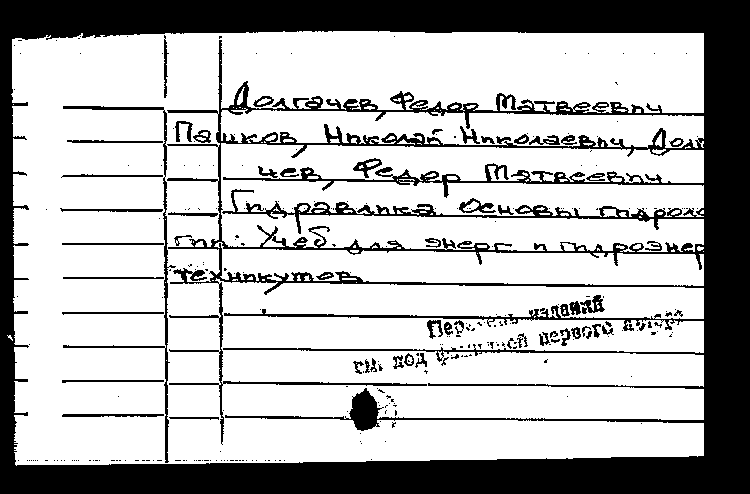 Долгачев, Федор Матвеевич
Пашков, Николай Николаевич, Долга
чев, Федор Матвеевич.
Гидравлика. Основы гидроло
гии: Учеб. для энерг. и гидроэнер
техникумов.
Перечень изданий
см. под фамилией первого автора